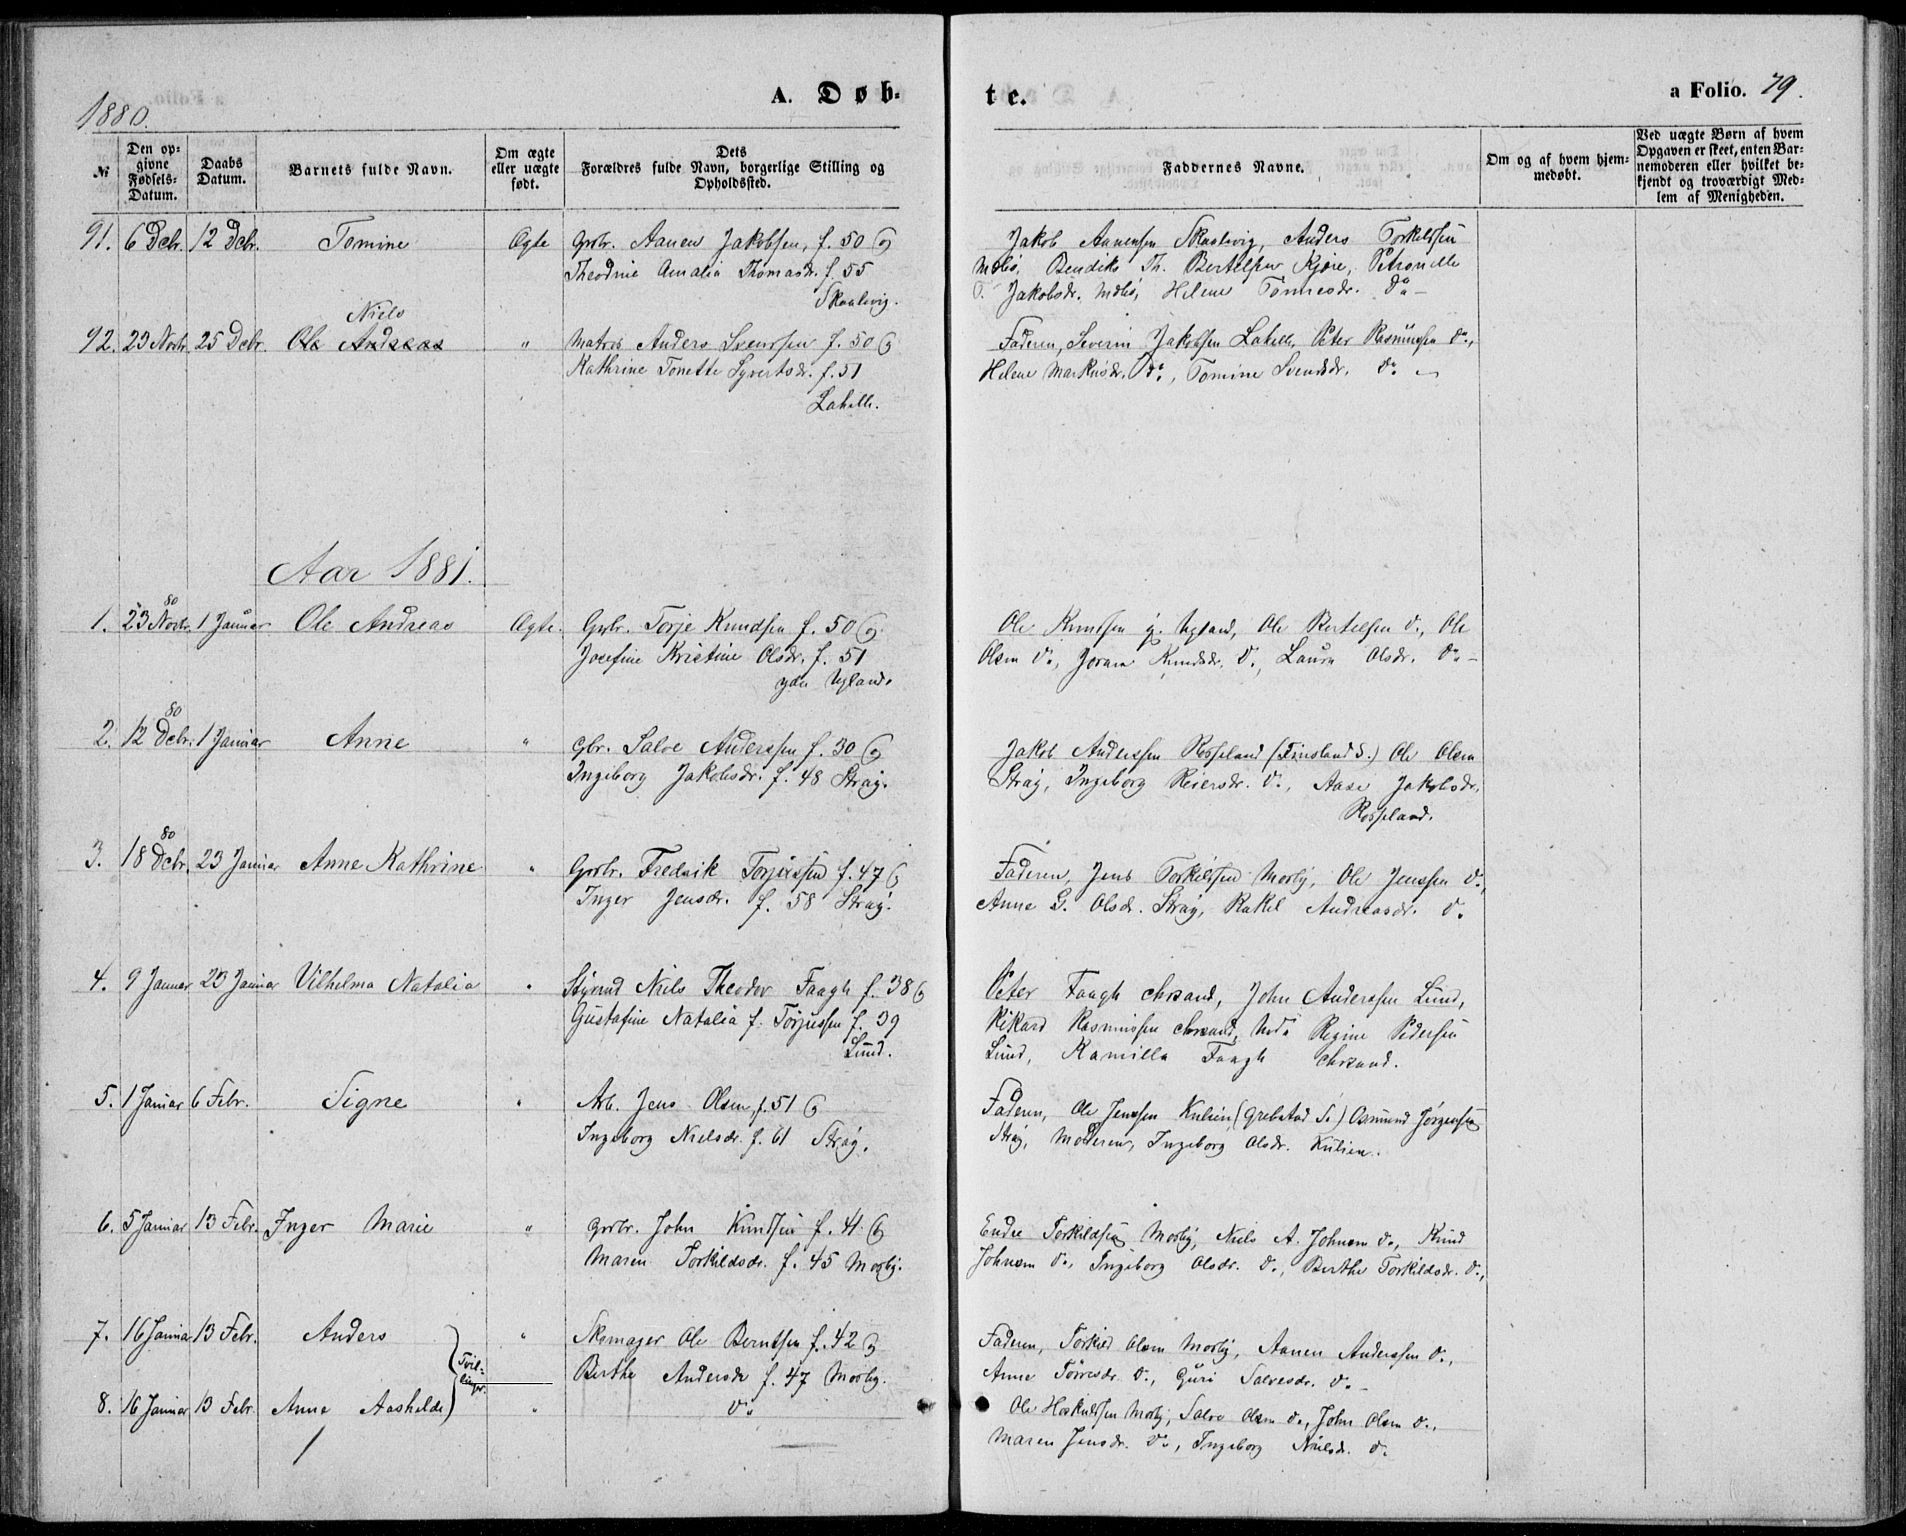 1880.
A. Døb-
te.
a Folio. 79.
№
Den op-
givne
Fødsels-
Datum.
Daabs
Datum.
Barnets fulde Navn.
Om ægte
eller uægte
født.
Dets
Forældres fulde Navn, borgerlige Stilling og
Opholdssted.
Faddernes Navne.
Om og af hvem hjem-
medøbt.
Ved uægte Børn af hvem
Opgaven er skeet, enten Bar-
nemoderen eller hvilket be-
kjendt og troværdigt Med-
lem af Menigheden.
91. 6 Debr. 12 Debr. Tomine Ægte Gbr. Aanen Jakobsen, f. 50 og
Theodine Amalia Thomasdr. f. 55
Skaalevig.
Jakob Aanensen Skaalevig, Anders Torkildsen
Bendikt Th. Bertelsen Kjære, Petronelle
Jakobsdr. Helene Tønnesdr. do
Niels
92. 23 Novbr. 25 Debr. Ole Andreas " Matros Anders Svendsen f. 50 og
Kathrine Tonette Syvertsdr. f. 51
Lahelle.
Faderen, Severin Jakobsen Lahelle, Peter Rasmussen do,
Helene Markusdr. do, Tomine Svendsdr. do
Aar 1881.
1. 23 Novbr. 80 1 Januar Ole Andreas Ægte. Gbr. Torje Knudsen f. 50 og
Josefine Kristine Olsdr. f. 51
ydre Ugland.
Ole Knudsen y. Ugland, Ole Bertelsen do, Ole
Olsen do, Joran Knudsdr. do, Laura Olsdr. do
2. 12 Debr. 80 1 Januar Anne " Gbr. Salve Anderssen f. 30 og
Ingeborg Jakobsdr. f. 48 Strag.
Jakob Anderssen Rosseland (Finsland S.) Ole Olsen
Strag, Ingeborg Reiersdr. do, Aase Jakobsdr.
Rosseland.
3. 18 Debr. 80 23 Januar Anne Kathrine " Gbr. Fredrik Torjussen f. 47 og
Inger Jensdr. f. 58 Strag.
Faderen, Jens Torkildsen Mosby, Ole Jenssen do,
Anne G. Olsdr. Strag, Rakel Andreasdr. do
4. 9 Januar 23 Januar Vilhelma Natalia " Styrmd Niels Theodor Faagh f. 38 og
Gustafine Natalia f. Torjussen f. 39
Lund.
Peter Faagh Chrsand, John Anderssen Lund,
Rikard Rasmussen Chrsand, Regine Pedersen
Lund, Kamilla Faagh Chrsand.
5. 1 Januar 6 Febr. Signe " Arb. Jens Olsen f. 51 og
Ingeborg Nielsdr. f. 61 Strag.
Faderen, Ole Jenssen Kulien (Grebstad S.) Osmund Jørgensen
Strag, Moderen, Ingeborg Olsdr. Kulien.
6. 5 Januar 13 Febr. Inger Marie " Gbr. John Knudsen f. 41 og
Maren Torkildsdr. f. 45 Mosby.
Endre Torkildsen Mosby, Niels A. Johnsen do, Knud
Johnsen do, Ingeborg Olsdr. do, Berthe Torkildsdr. do,
7. 16 Januar 13 Febr. Anders " Skomager Ole Berntsen f. 42 og
Berthe Andersdr f. 47 Mosby.
Tvil-
linger.
Faderen, Torkild Olsen Mosby, Aanen Anderssen do,
Anne Tørresdr. do, Guri Salvesdr. do
8. 16 Januar 13 Febr. Anne Aashilde " do
Ole Hoskuldsen Mosby, Salve Olsen do, John Olsen do,
Maren Jensdr. do, Ingeborg Nielsdr. do